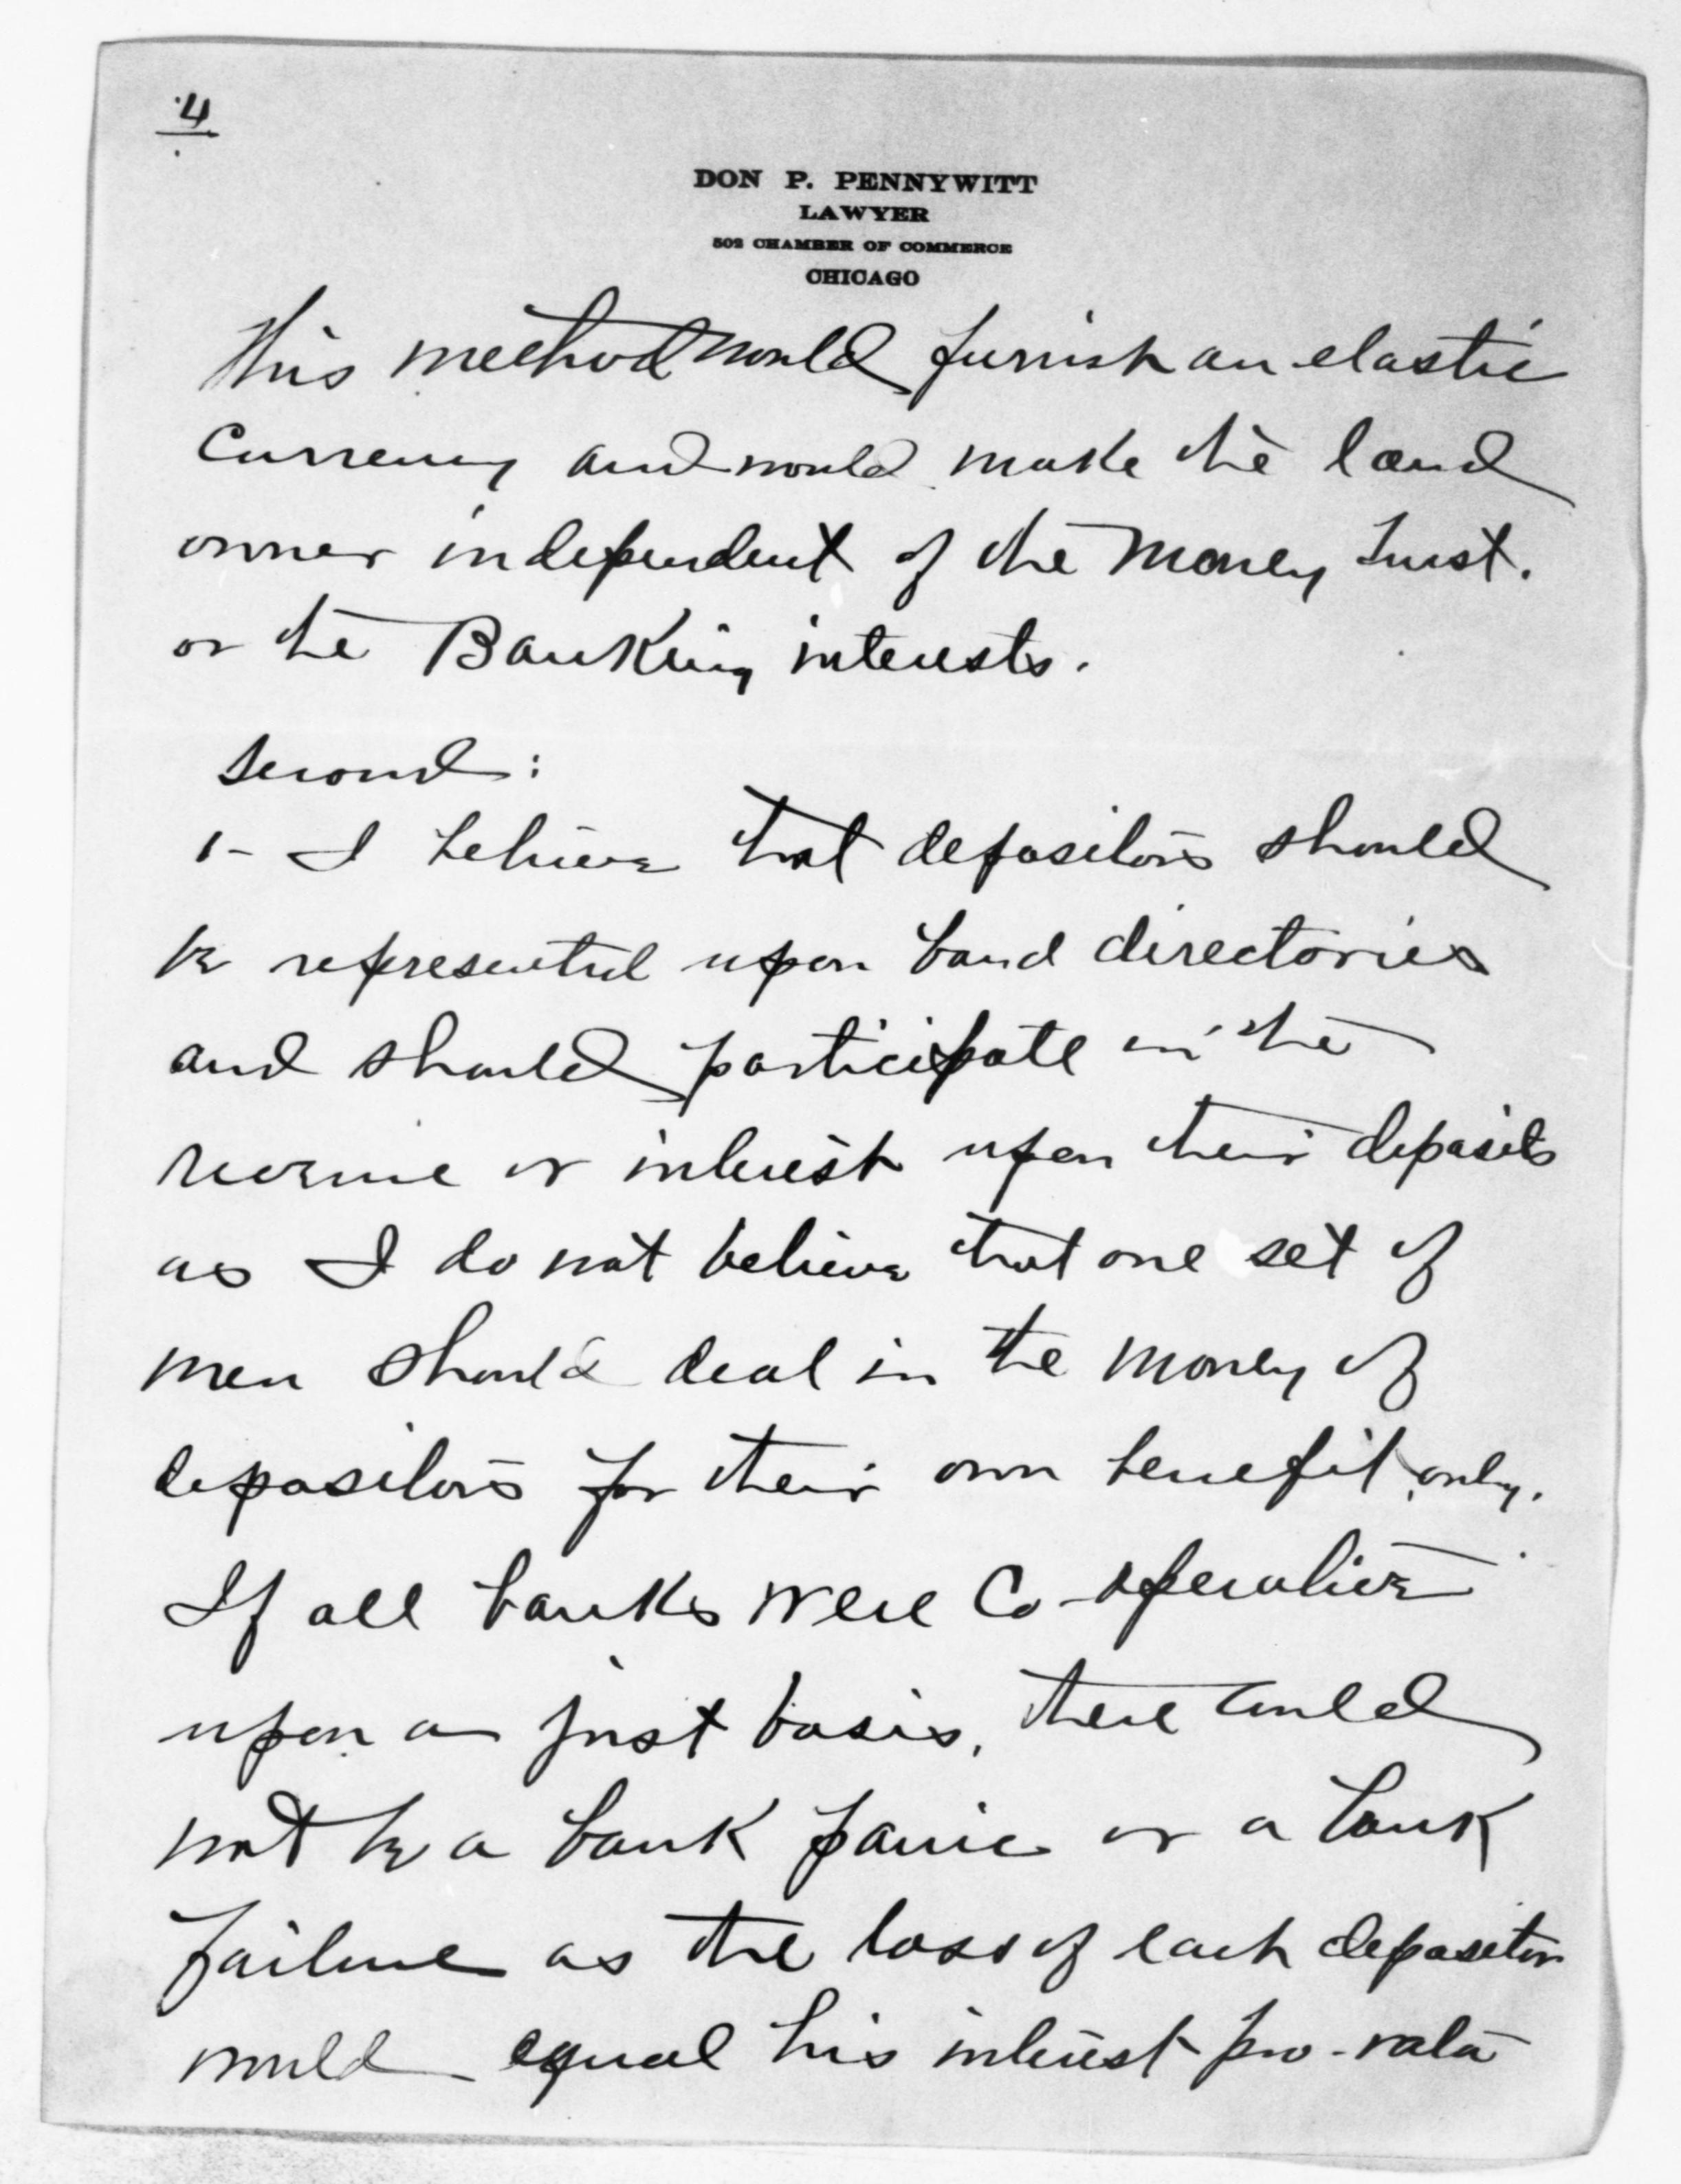 4
DON P. PENNYWITT
LAWYER
502 CHAMBER OF COMMERCE
CHICAGO
This method would furnish an elastic
Currency and would make the land
owner independent of the Money trust.
or the Banking interests.
Second:
1- I believe that depositors should
be represented upon band directories
and should participate in the
revenue or interest upon their deposits
as I do not believe that one set of
men should deal in the money of
depositors for their own benefit only.
If all banks were Co-operative
upon a just basis, there could
not be a bank panic or a bank
failure as the loss of each depositor
would equal his interest pro-rata